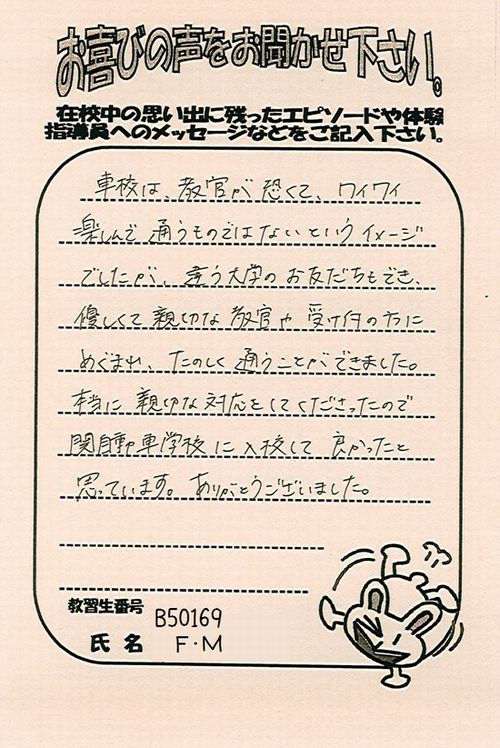 お喜びの声をお聞かせ下さい。
在校中の思い出に残ったエピソードや体験
指導員へのメッセージなどをご記入下さい。
車校は、教官が恐くて、ワイワイ
楽しんで通うものではないというイメージ
でしたが、違う大学のお友だちもでき、
優しくて親切な教官や受け付の方に
めぐまれ、たのしく通うことができました。
本当に親切な対応をしてくださったので
関自動車学校に入校して良かったと
思っています。ありがとうございました。
教習生番号 B50169
氏名 F・M